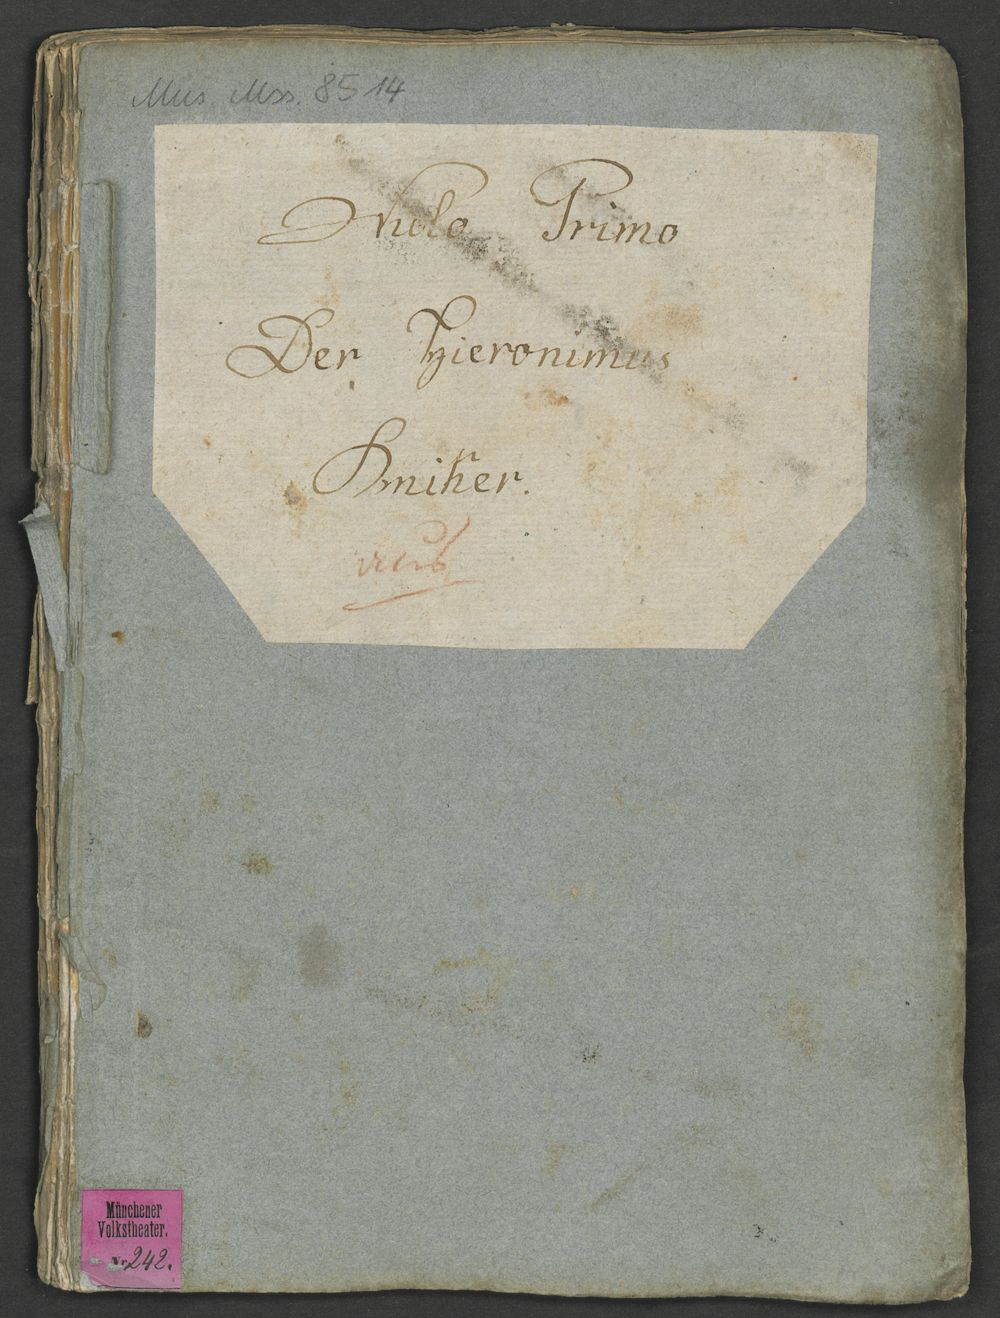 Mus. Mss. 8514
Acto Primo
Der Hieronimus
Kniker.
aus
Münchener
Volkstheater.
Nr. 242.